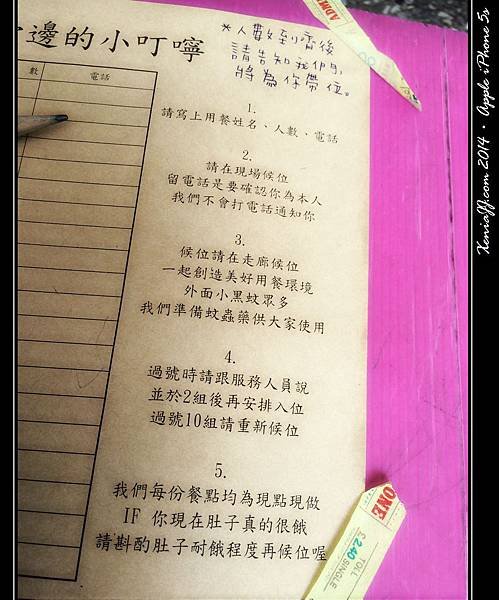 邊的小叮嚀
*人數到齊後
請告知我們,
將為你帶位。
數
電話
1.
請寫上用餐姓名、人數、電話
2.
請在現場候位
留電話是要確認你為本人
我們不會打電話通知你
3.
候位請在走廊候位
一起創造美好用餐環境
外面小黑蚊眾多
我們準備蚊蟲藥供大家使用
4.
過號時請跟服務人員說
並於2組後再安排入位
過號10組請重新候位
5.
我們每份餐點均為現點現做
IF 你現在肚子真的很餓
請斟酌肚子耐餓程度再候位喔
ADMI
ONE
£240
TOLL
SINGLE
Xeniaff.com 2014 · Apple iPhone 5s